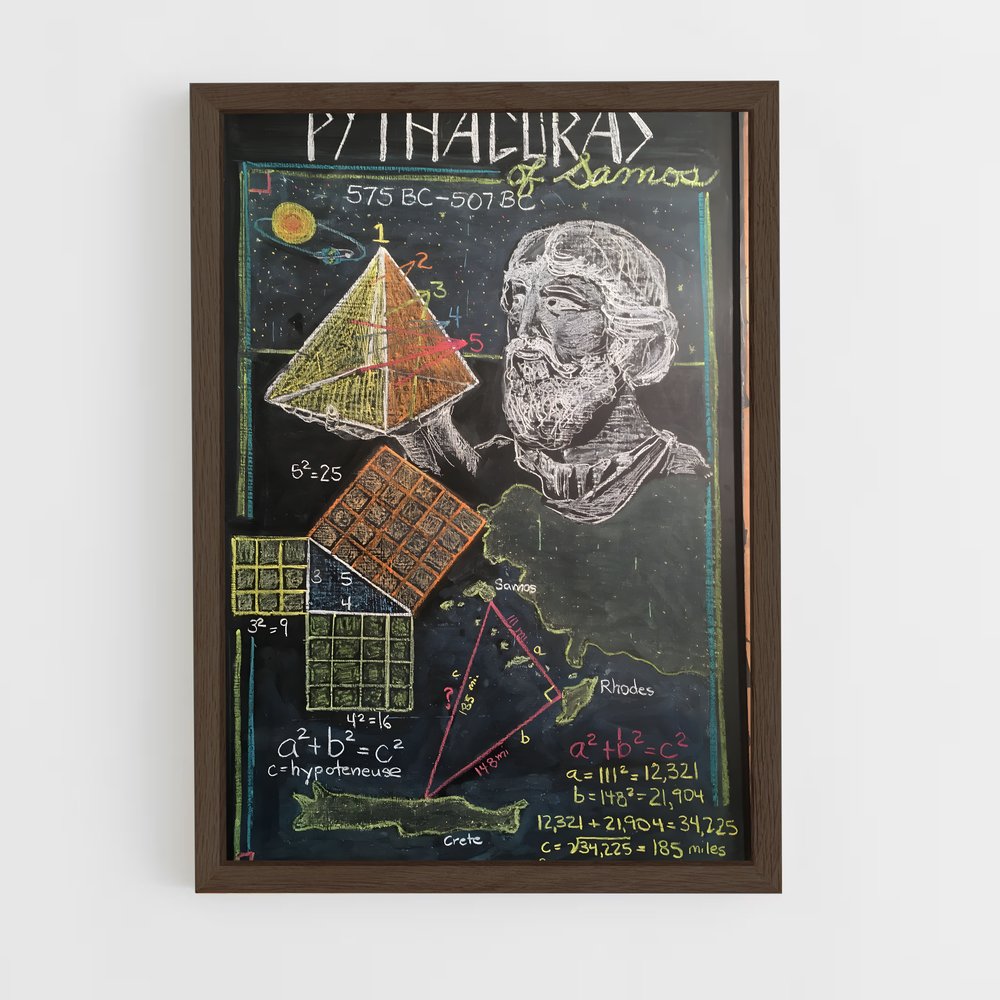 PYTHAGORAS
of Samos
575 BC-507 BC
1
2
3
4
5
5²=25
3
5
4
3²=9
4²=16
a²+b²=c²
c=hypoteneuse
Samos
111 mi
a
c
?
185 mi.
Rhodes
b
148 mi
Crete
a²+b²=c²
a=111²=12,321
b=148²=21,904
12,321+21,904=34,225
c=√34,225=185 miles